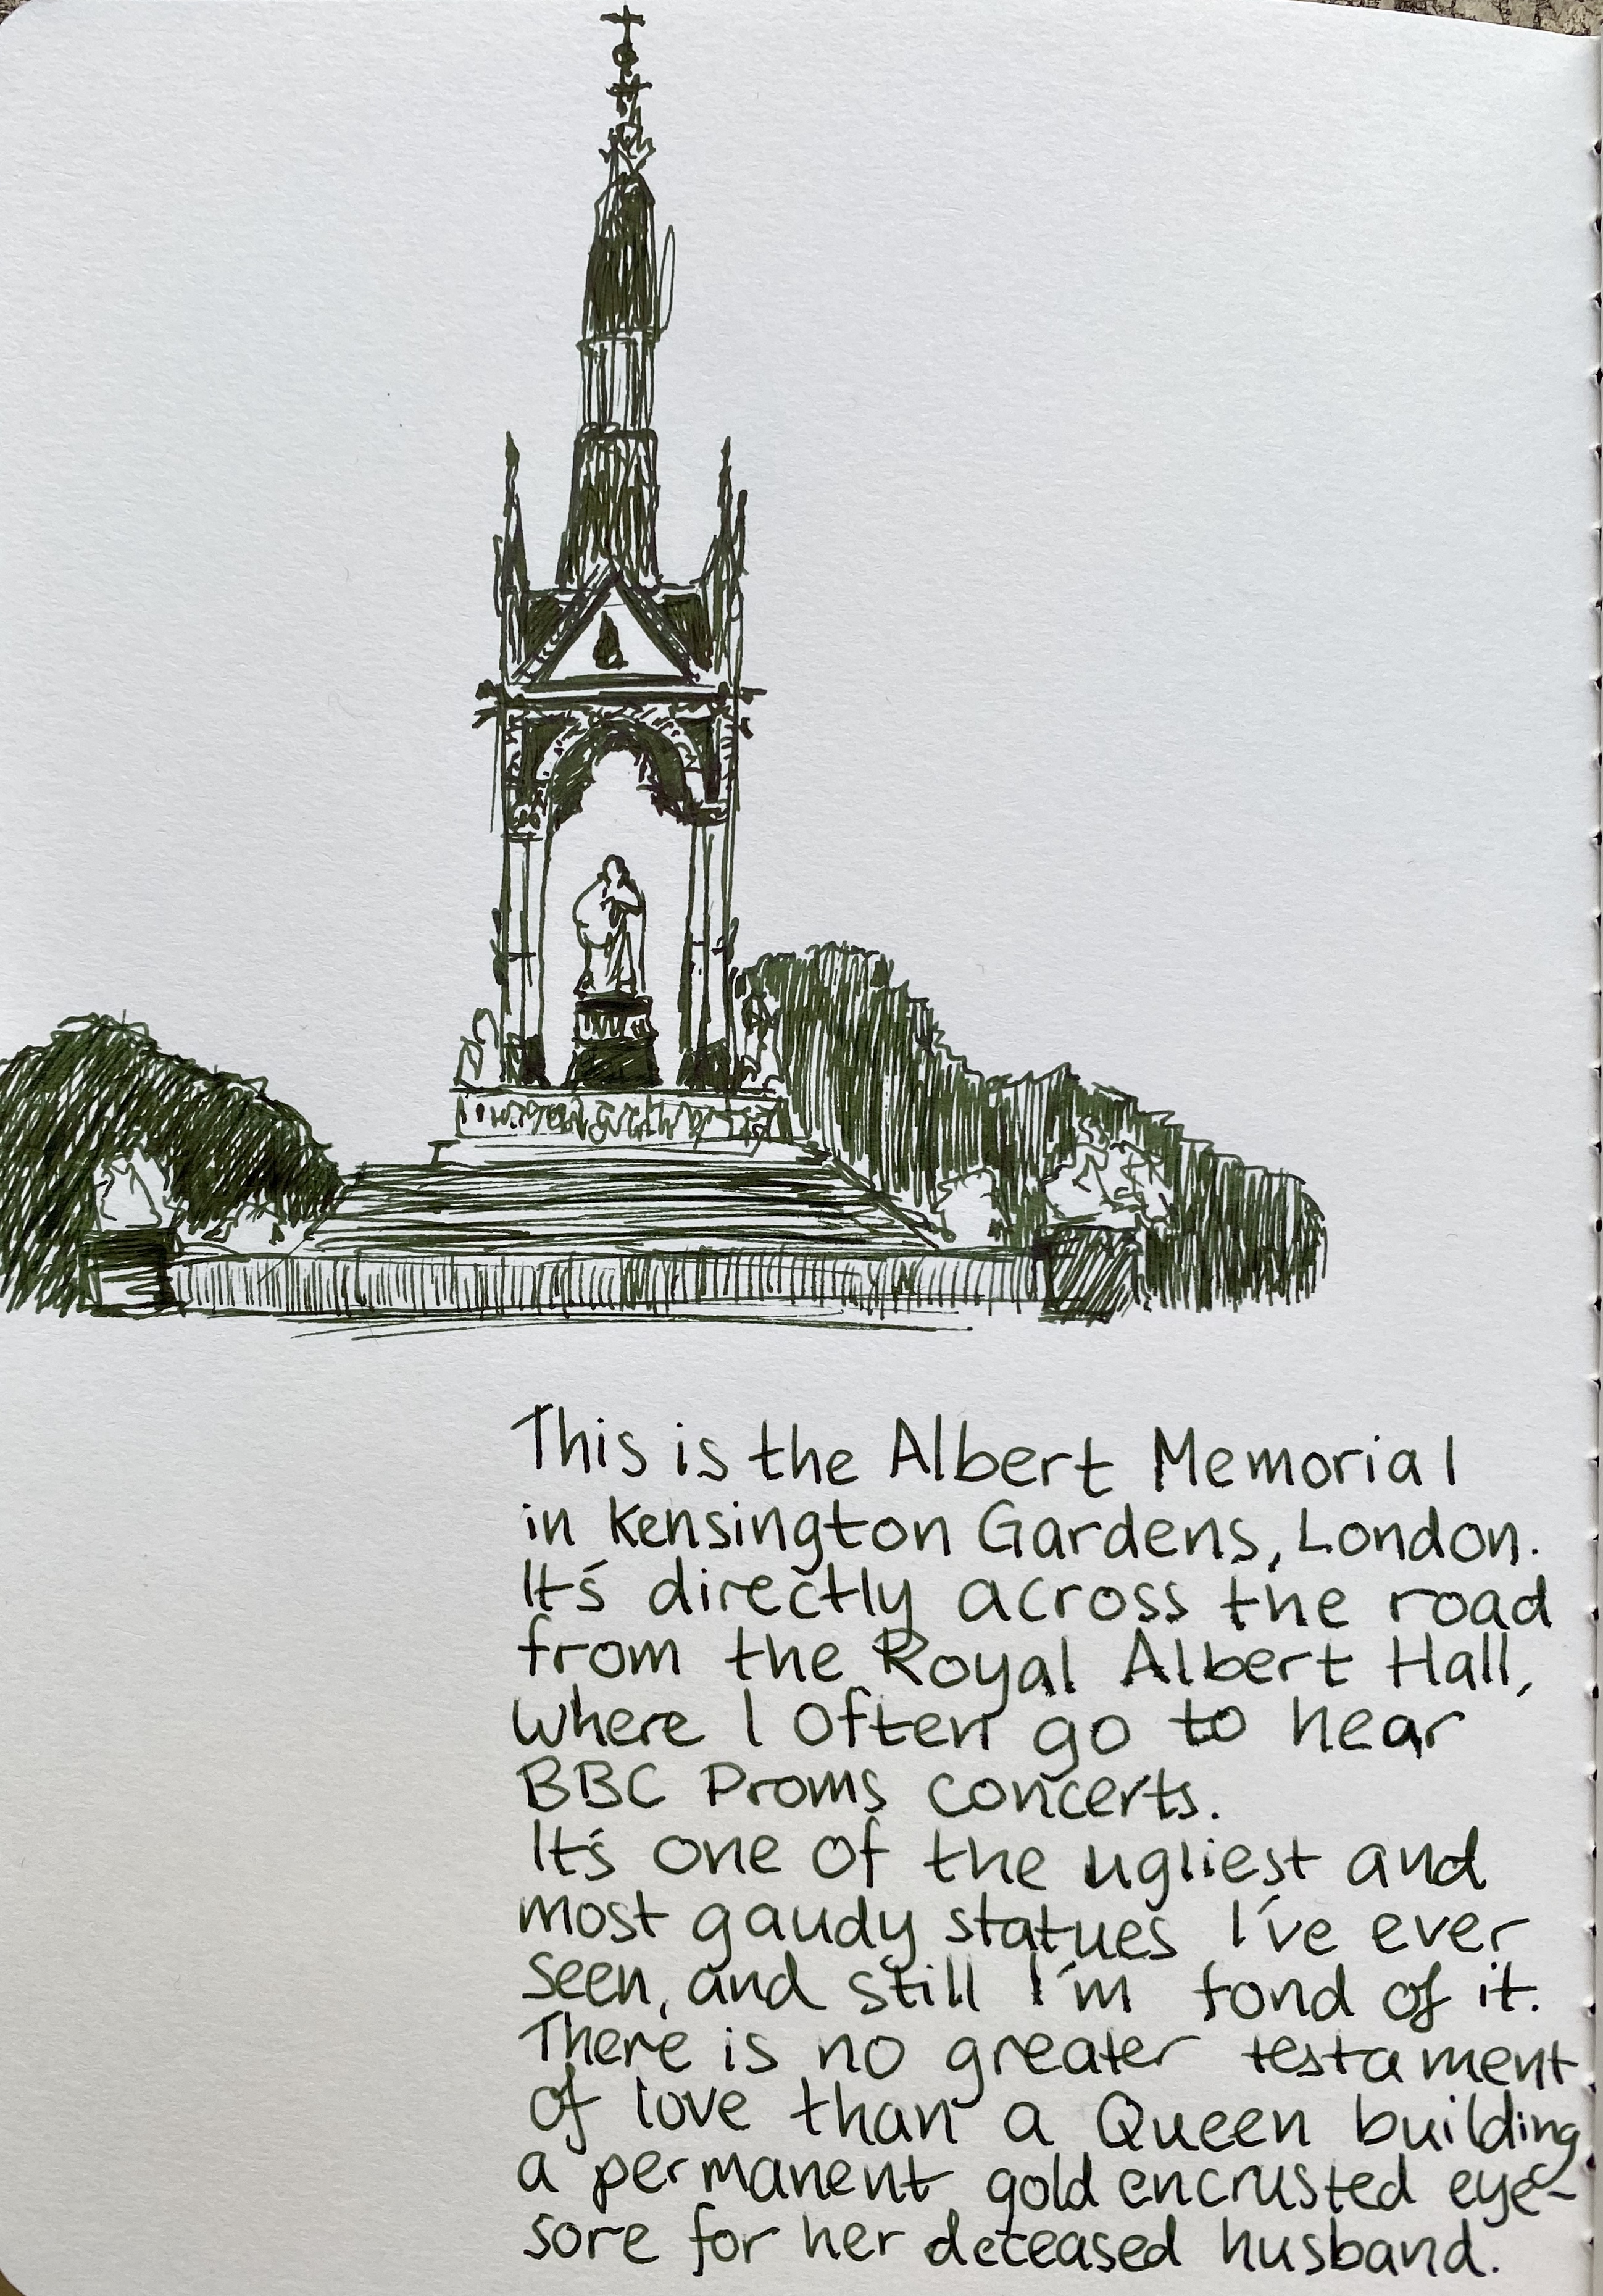 This is the Albert Memorial
in Kensington Gardens, London.
It's directly across the road
from the Royal Albert Hall,
where I often go to hear
BBC Proms concerts.
It's one of the ugliest and
most gaudy statues I've ever
seen, and still I'm fond of it.
There is no greater testament
of love than a Queen building
a permanent gold encrusted eye-
sore for her deceased husband.